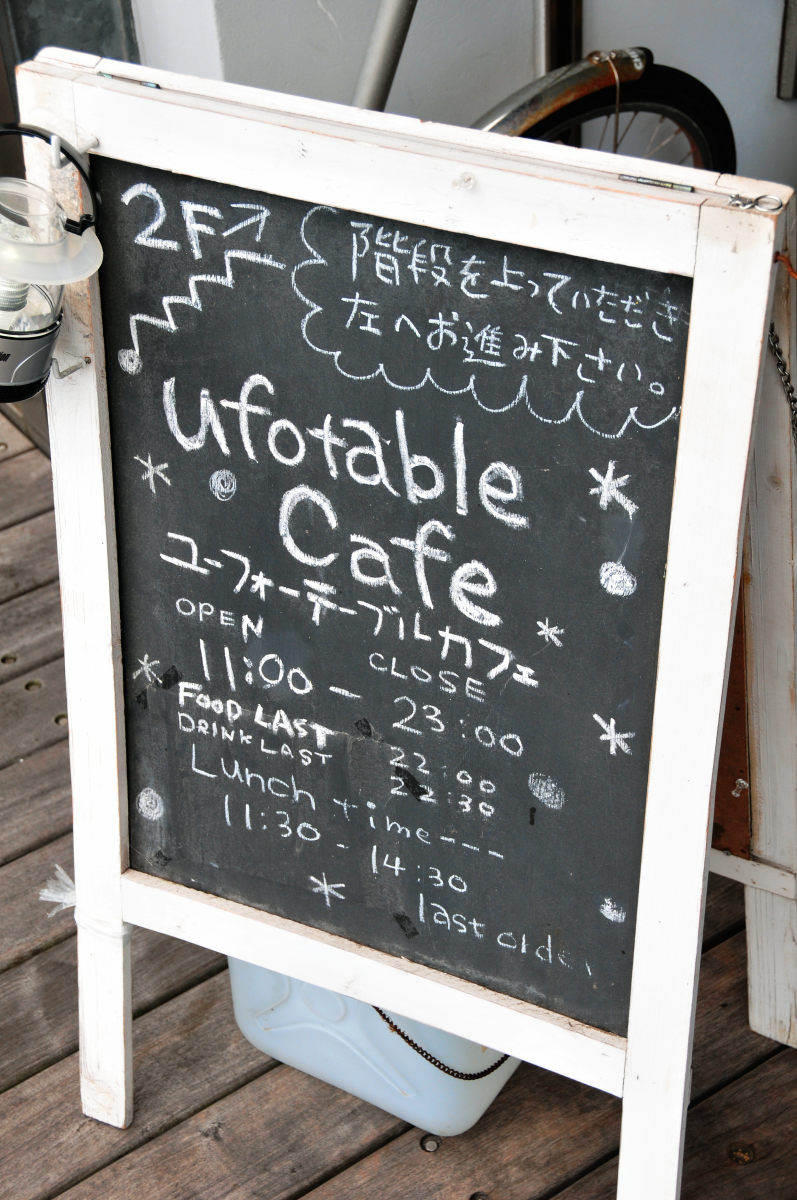 2F↗
階段を上っていただき
左へお進み下さい。
ufotable
Cafe
ユーフォーテーブルカフェ
OPEN CLOSE
11:00 - 23:00
FOOD LAST 22:00
DRINK LAST 22:30
Lunch time---
11:30 - 14:30
last order